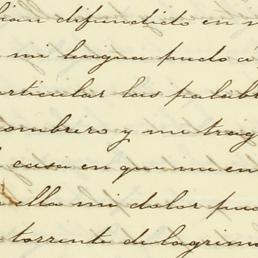 bian difundido en m
mi lengua pudo a
articular las palab
sombrero y mi trag
casa en que me en
ella mi dolor pud
torrente de lagrima